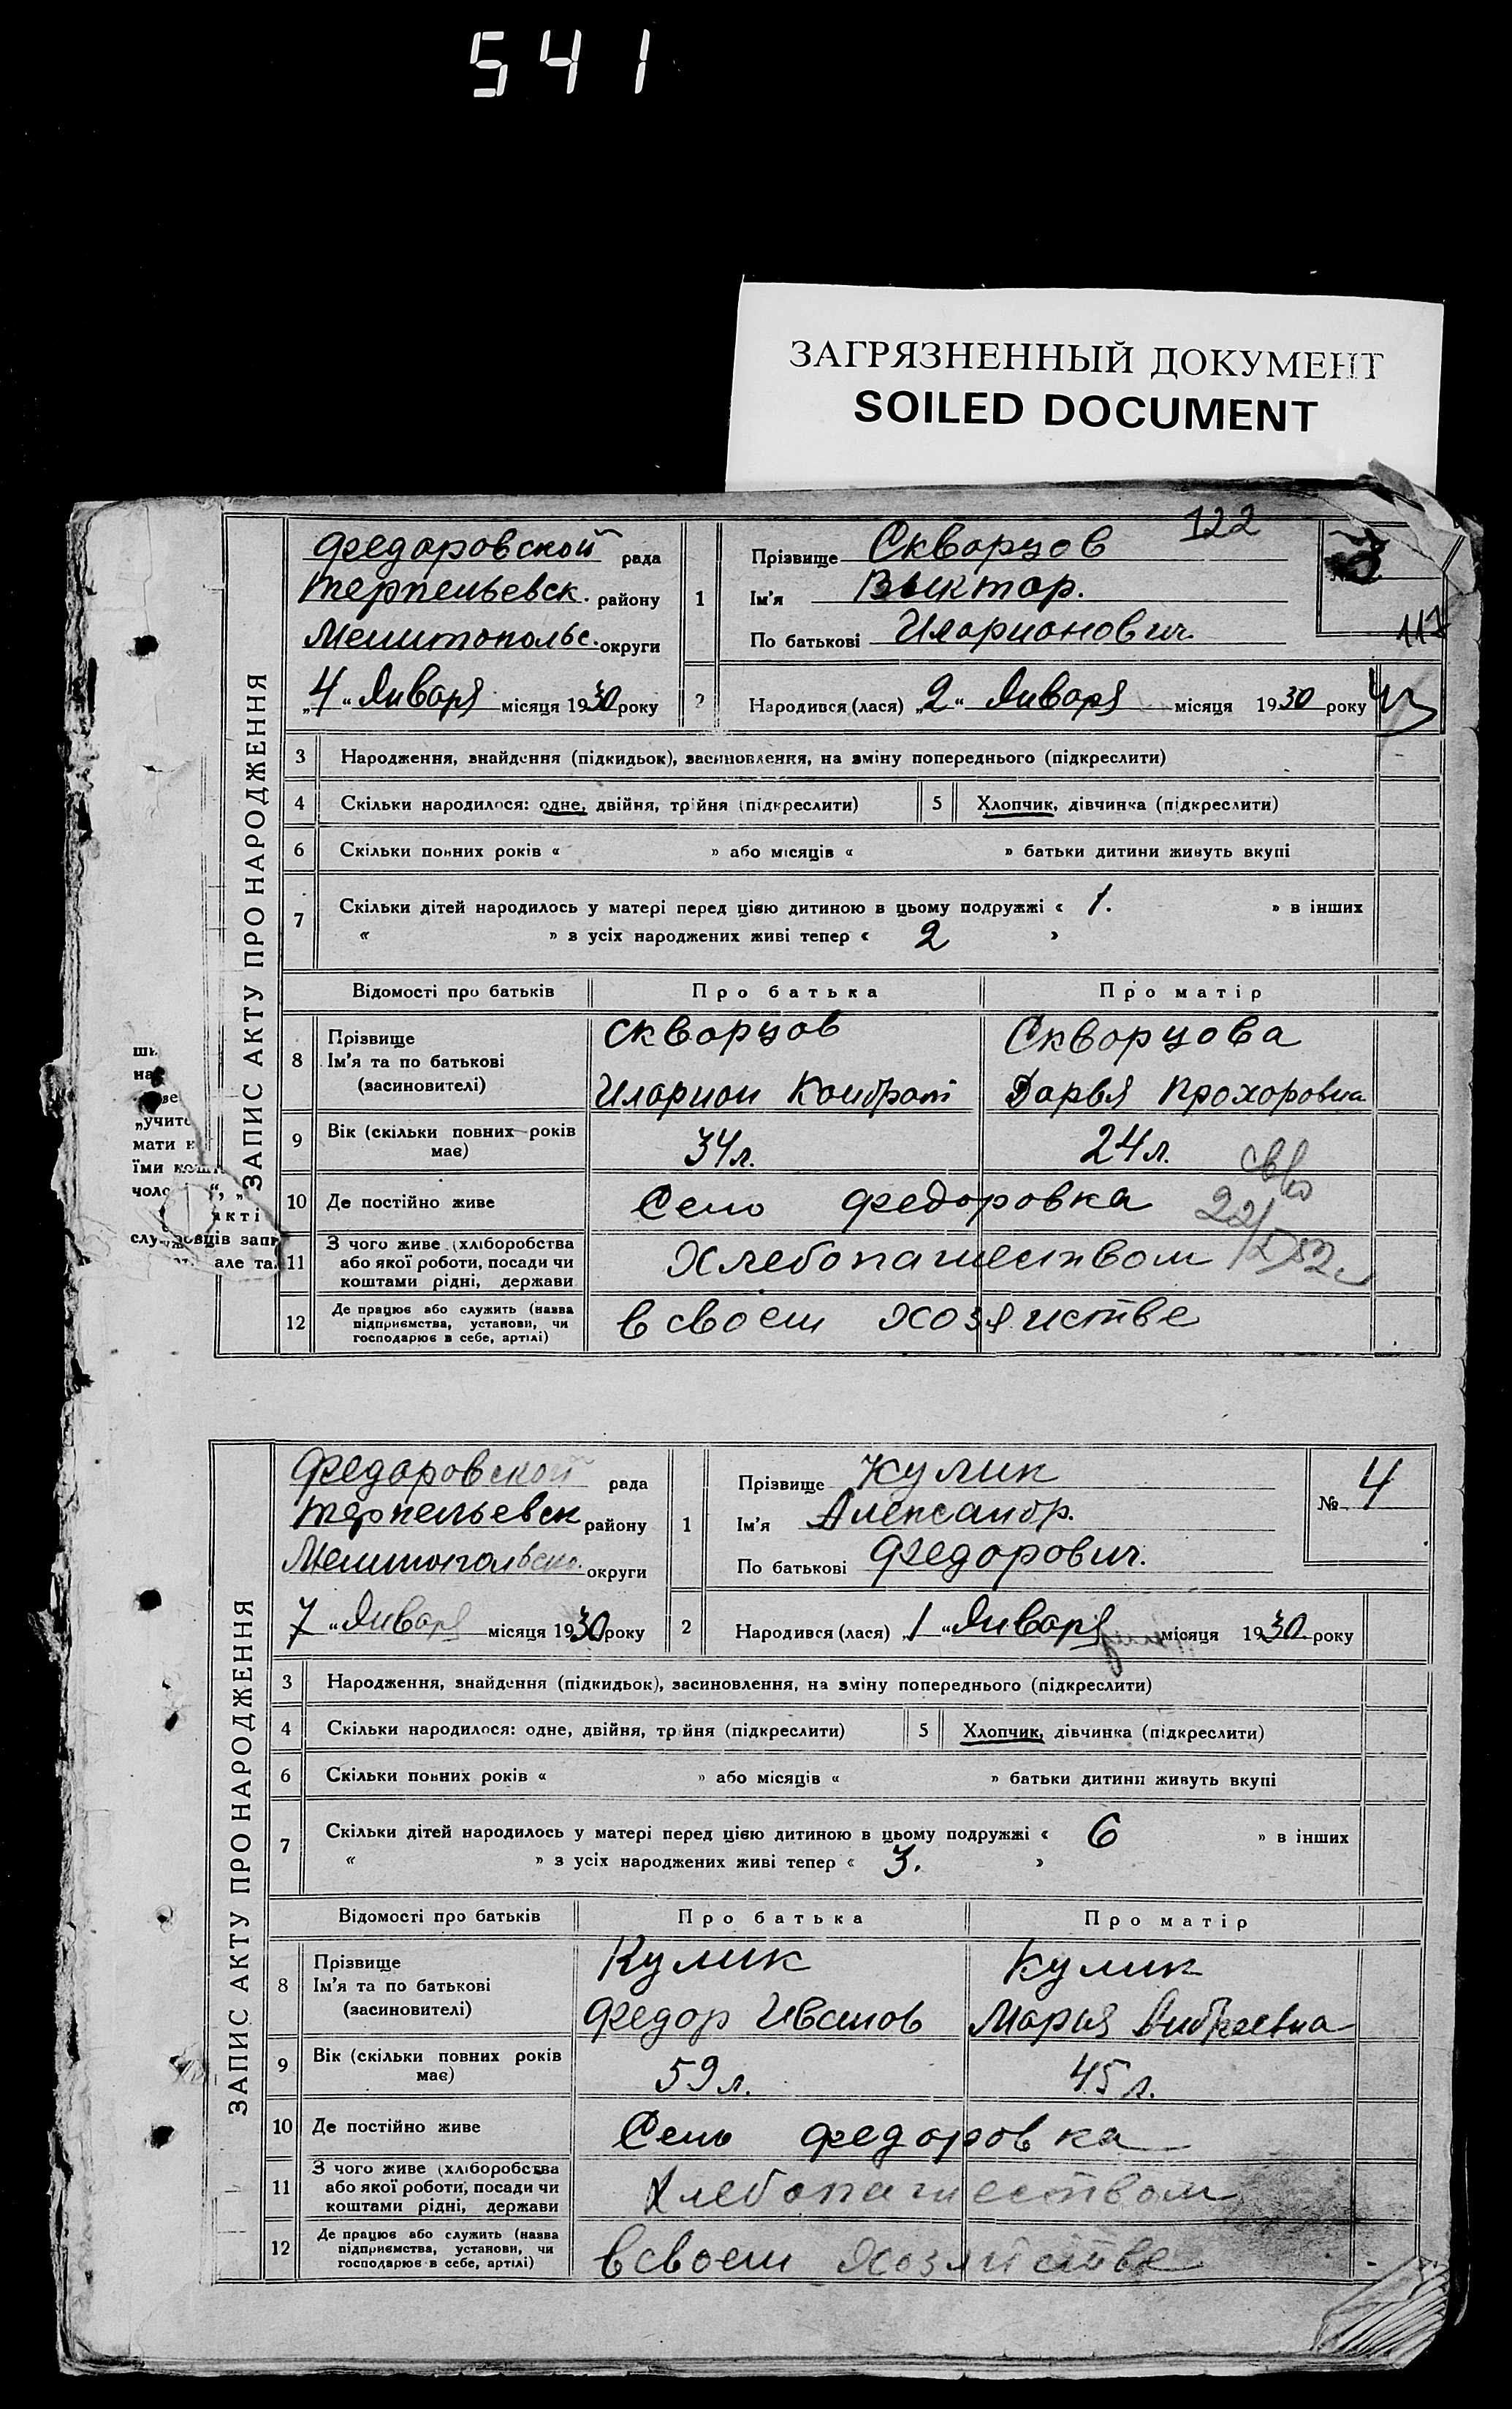 541
ЗАГРЯЗНЕННЫЙ ДОКУМЕНТ
SOILED DOCUMENT
122
117
ЗАПИС АКТУ ПРО НАРОДЖЕННЯ
Федоровской рада
Терпельевск. району
Мелитопольс. округи
„4“ Января місяця 1930 року
1
Прізвище Скворцов
Ім'я Виктор.
По батькові Иларионович.
2 Народився (лася) „2“ Января місяця 1930 року
3 Народження, знайдення (підкидьок), засиновлення, на зміну попереднього (підкреслити)
4 Скільки народилося: одне, двійня, трійня (підкреслити) 5 Хлопчик, дівчинка (підкреслити)
6 Скільки повних років « » або місяців « » батьки дитини живуть вкупі
7 Скільки дітей народилось у матері перед цією дитиною в цьому подружжі « 1. » в інших
« » з усіх народжених живі тепер « 2 »
Відомості про батьків Про батька Про матір
8 Прізвище Ім'я та по батькові (засиновителі)
Скворцов Скворцова
Иларион Кондрат Дарья Прохоровна
9 Вік (скільки повних років має) 34 л. 24 л.
10 Де постійно живе Село Федоровка
11 З чого живе (хліборобства або якої роботи, посади чи коштами рідні, держави Хлебопашеством
12 Де працює або служить (назва підприємства, установи, чи господарює в себе, артілі) в своем хозяистве
шк
на
зе
„учите
мати
їми кошт
чоло
акті
службовців запи
але та
ЗАПИС АКТУ ПРО НАРОДЖЕННЯ
Федоровской рада
Терпельевск району
Мелитопольск. округи
7 „Января місяця 1930 року
1
Прізвище Кулик
Ім'я Александр.
По батькові Федорович.
№ 4
2 Народився (лася) „1 „Января місяця 1930 року
3 Народження, знайдення (підкидьок), засиновлення, на зміну попереднього (підкреслити)
4 Скільки народилося: одне, двійня, трійня (підкреслити) 5 Хлопчик, дівчинка (підкреслити)
6 Скільки повних років « » або місяців « » батьки дитини живуть вкупі
7 Скільки дітей народилось у матері перед цією дитиною в цьому подружжі « 6 » в інших
« » з усіх народжених живі тепер « 3. »
Відомості про батьків Про батька Про матір
8 Прізвище Ім'я та по батькові (засиновителі)
Кулик Кулик
Федор Иванов Марья Андреевна
9 Вік (скільки повних років має) 59 л. 45 л.
10 Де постійно живе Село Федоровка
11 З чого живе (хліборобства або якої роботи, посади чи коштами рідні, держави Хлебопашеством
12 Де працює або служить (назва підприємства, установи, чи господарює в себе, артілі) в своем хозяйстве